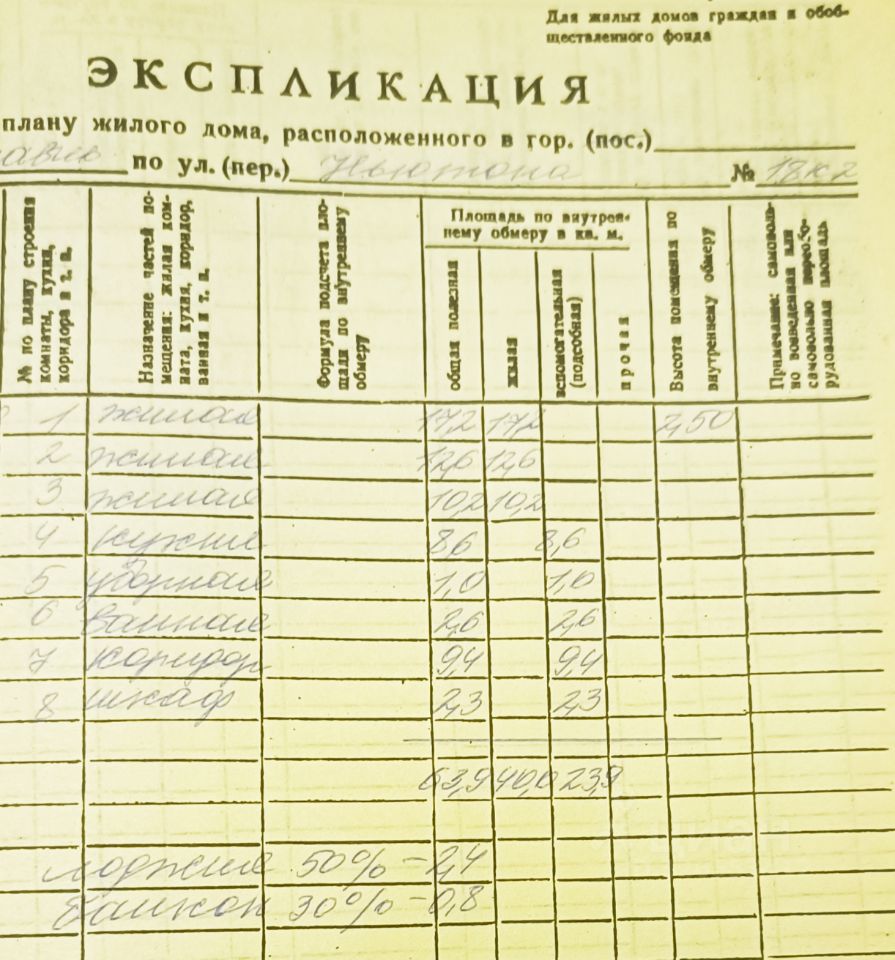 Для жилых домов граждан и обоб-
ществленного фонда
ЭКСПЛИКАЦИЯ
плану жилого дома, расположенного в гор. (пос.)
по ул. (пер.) Ньютона № 18к2
№ по плану строения
комнаты, кухни,
коридора и т. п.
Назначение частей по-
мещения: жилая ком-
ната, кухня, коридор,
ванная и т. п.
Формула подсчета пло-
щади по внутреннему
обмеру
Площадь по внутрен-
нему обмеру в кв. м.
общая полезная
жилая
вспомогательная
(подсобная)
прочая
Высота помещения по
внутреннему обмеру
Примечание: самоволь-
но возведенная или
самовольно переобо-
рудованная площадь
1 жилая 17,2 17,2 2,50
2 жилая 12,6 12,6
3 жилая 10,2 10,2
4 кухня 8,6 8,6
5 уборная 1,0 1,0
6 ванная 2,6 2,6
7 коридор 9,4 9,4
8 шкаф 2,3 2,3
63,9 40,0 23,9
лоджия 50% - 2,4
балкон 30% - 0,8